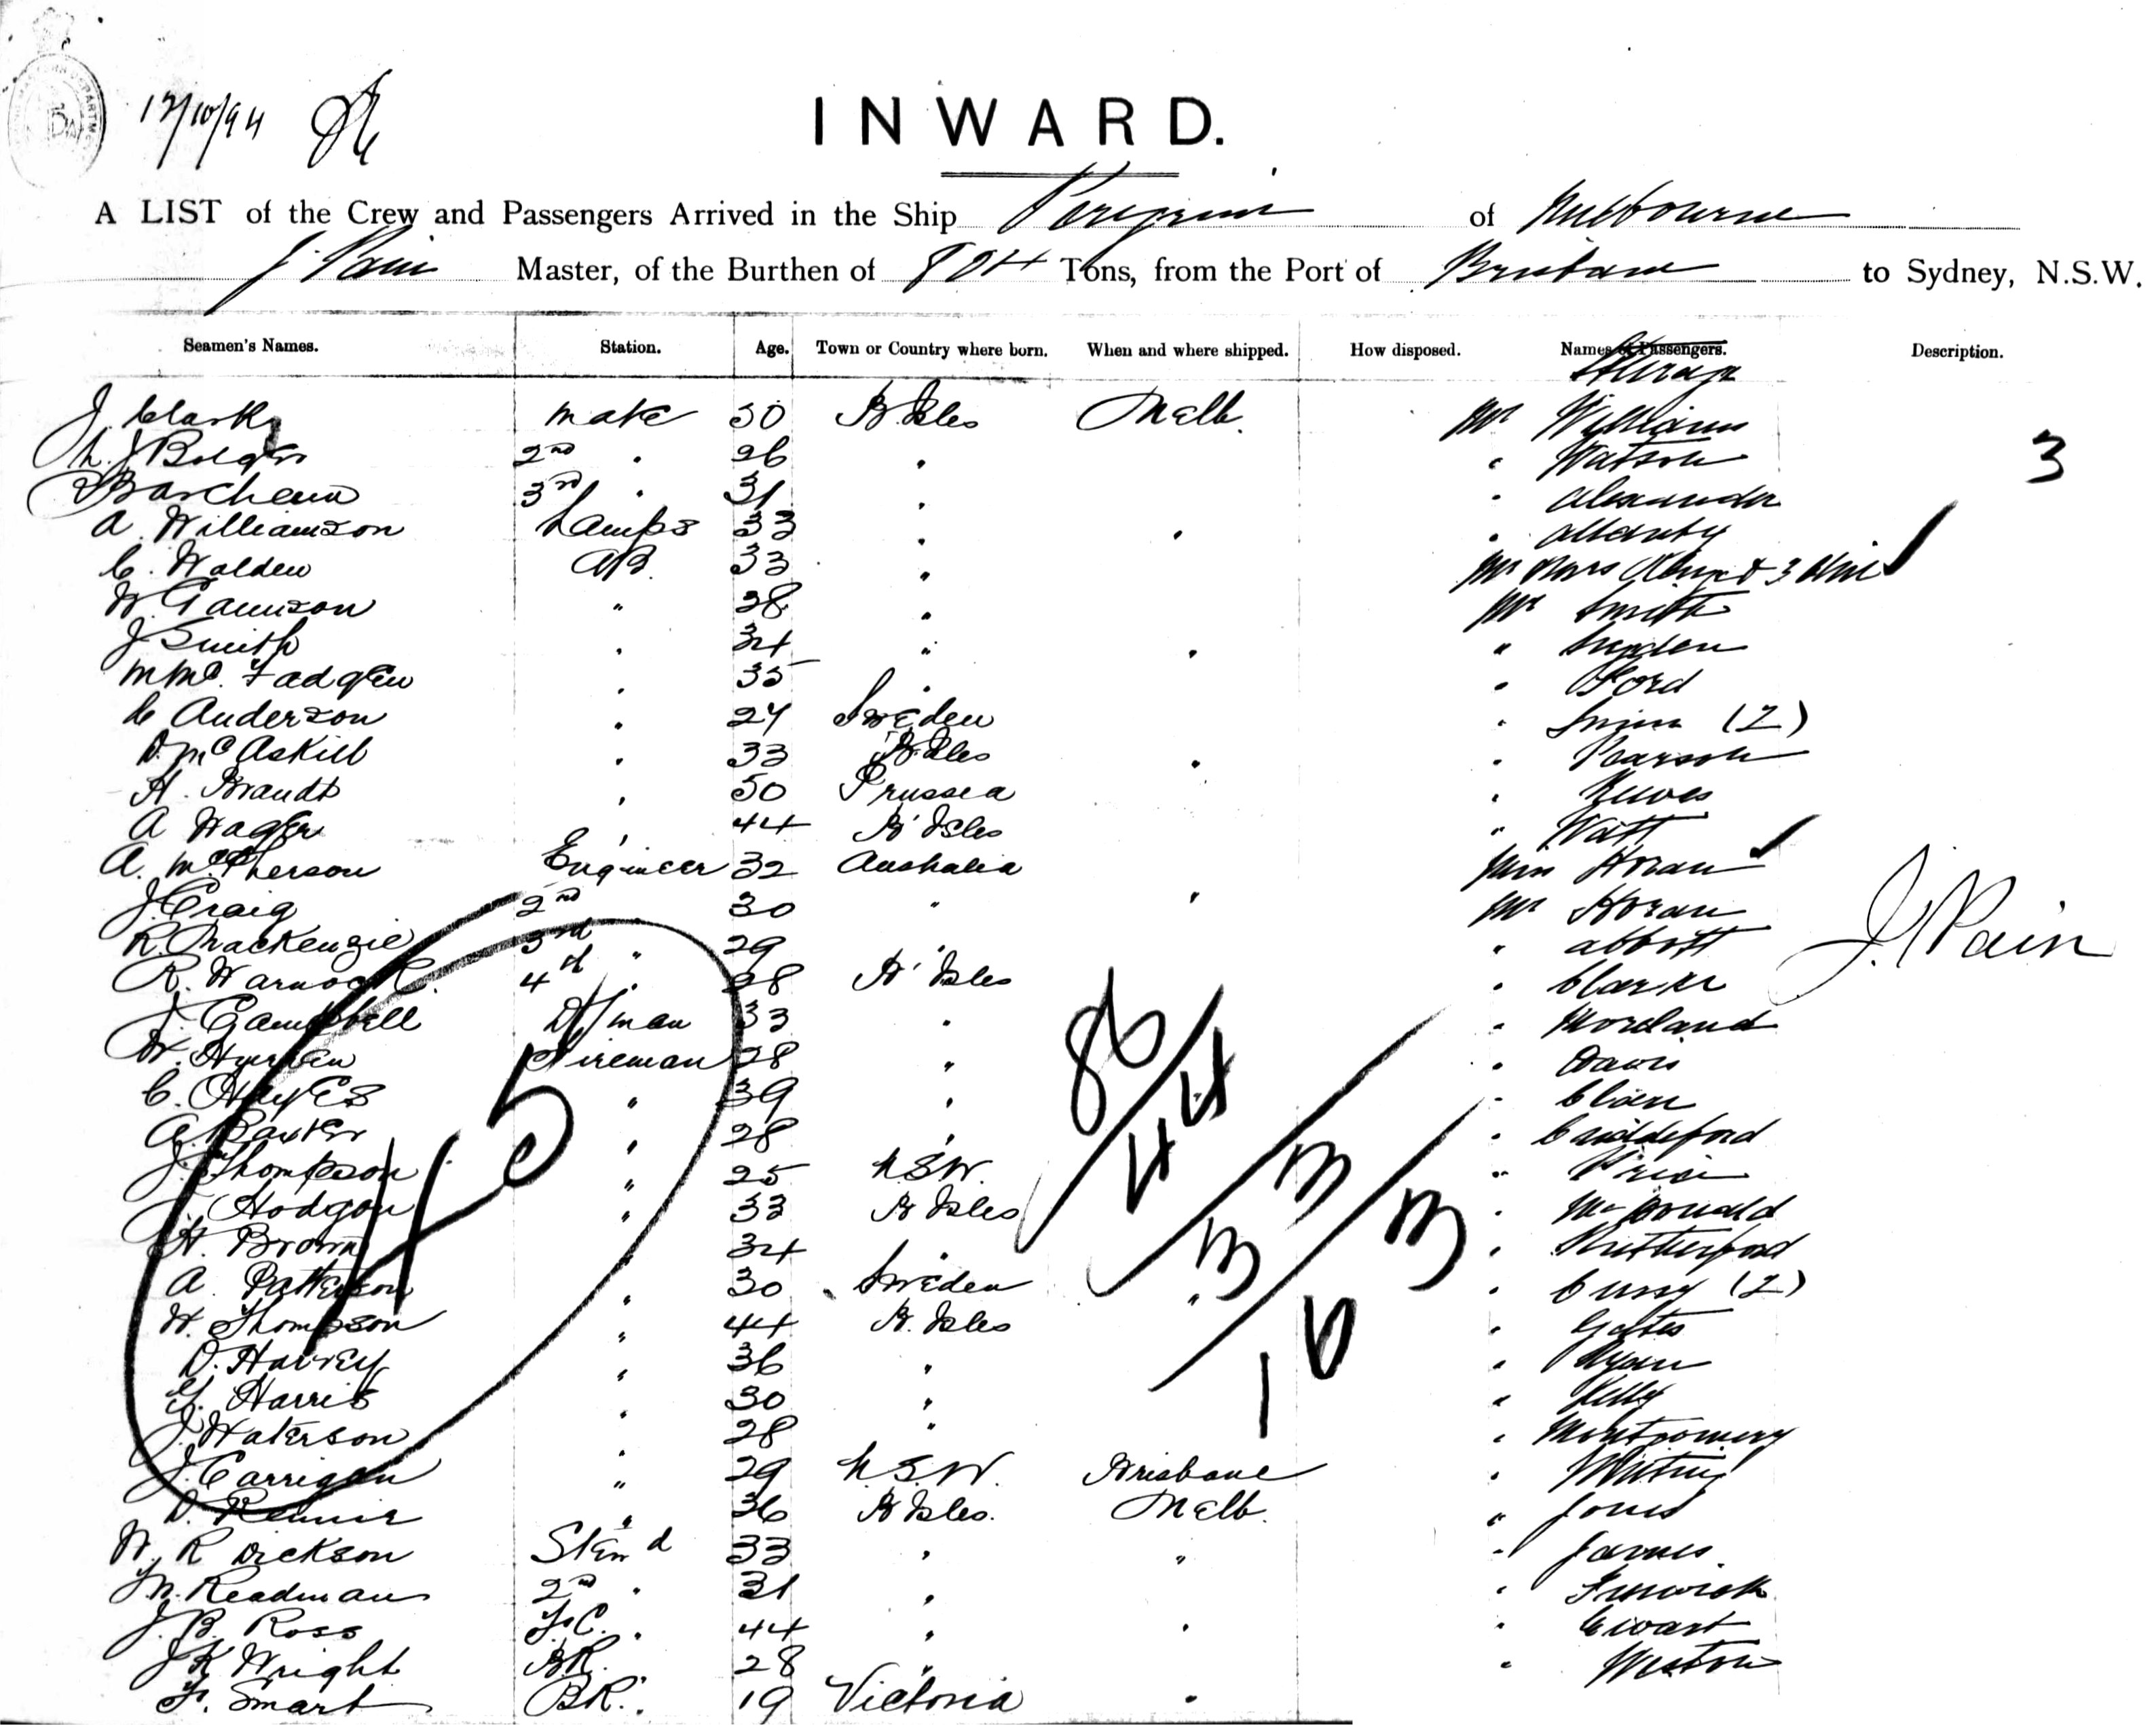 12/10/94
INWARD.
A LIST of the Crew and Passengers Arrived in the Ship of Melbourne
J. Pain Master, of the Burthen of Tons, from the Port of Brisbane to Sydney, N.S.W.
Seamen's Names. Station. Age. Town or Country where born. When and where shipped. How disposed. Names of Passengers. Description.
Steerage
J. Clark mate 30 B. Isles Melb. Mr Williams
2nd " 26 " " Watson 3
3rd " 31 " " Alexander
A. Williamson Lamps 33 " " "
C. Walden AB. 33 " Mr Mrs & 3
" 38 " Mr Smith
J Smith " 34 " " "
M Mc. Fadgen " 35 " " Ford
C Anderson " 27 Sweden " (2)
D. McAskill " 33 B. Isles " " Pearson
H. Brandt " 50 Prussia " Reeves
A Wager " 44 B. Isles " Watt
A. McPherson Engineer 32 Australia Horan
J. Craig 2nd " 30 " " Mr Horan
R. Mackenzie 3rd " 29 " " Abbott
R. Warnock 4th " 28 B. Isles " Clarke
J. Campbell D/man 33 " " Moreland
Fireman 28 " " Davis
C. Hayes " 39 " "
A. Baxter " 28 " "
J. Thompson " 25 N.S.W. " Price
J. Hodgson " 33 B Isles " McDonald
H. Brown " 34 " " Rutherford
A. Patterson " 30 Sweden " " (2)
W. Thompson " 44 B. Isles " Gates
D. Harvey " 36 " " Ryan
G. Harris " 30 " " Kelly
J. Waterson " 28 " " Montgomery
J. Carrigan " 29 N.S.W. Brisbane " Whiting
D. Rennie " 36 B Isles. Melb. " Jones
W. R Dickson 33 " " " James
M. Readman 2nd " 31 " " Fenwick
J. B. Ross F.C. " 44 " " " Ewart
J K Wright B.R. 28 " " Weston
F. Smart B.R. " 19 Victoria "
J. Pain
86
44
33
3
16